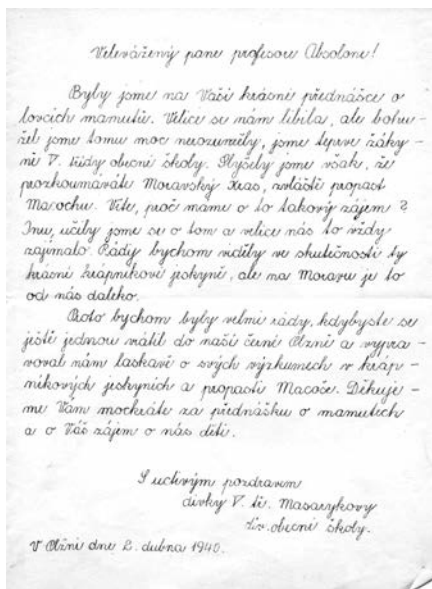 Velevážený pane profesore Absolone!
Byly jsme na Vaší krásné přednášce o
lovcích mamutů. Velice se nám líbila, ale bohu-
žel jsme tomu moc nerozuměly, jsme teprve žáky-
ně V. třídy obecné školy. Slyšely jsme však, že
prozkoumáváte Moravský Kras, zvláště propast
Macochu. Víte, proč máme o to takový zájem?
Inu, učily jsme se o tom a velice nás to vždy
zajímalo. Rády bychom viděly ve skutečnosti ty
krásné krápníkové jeskyně, ale na Moravu je to
od nás daleko.
Proto bychom byly velmi rády, kdybyste se
ještě jednou vrátil do naší černé Plzně a vypra-
voval nám laskavě o svých výzkumech v kráp-
níkových jeskyních a propasti Macoše. Děkuje-
me Vám mockráte za přednášku o mamutech
a o Váš zájem o nás děti.
S uctivým pozdravem
dívky V. tř. Masarykovy
dív. obecné školy.
V Plzni dne 2. dubna 1940.